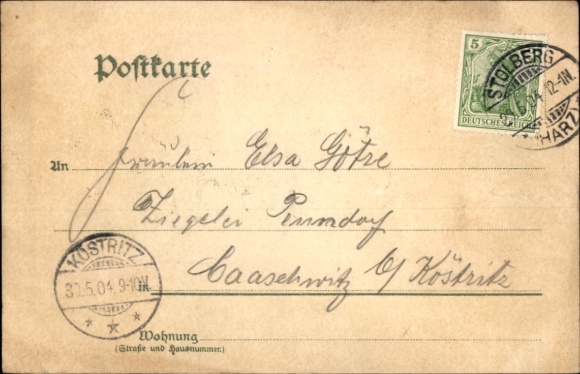 Postkarte
5
DEUTSCHES REICH
STOLBERG
5.04. 12-1N.
(HARZ)
An Fräulein Elsa Götze
Ziegelei Penndorf
in Caaschwitz b/ Köstritz
KÖSTRITZ
30.5.04. 9-10V.
Wohnung
(Straße und Hausnummer)